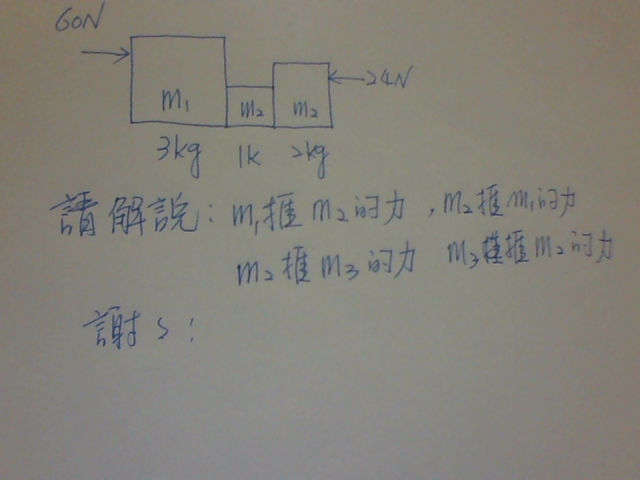 60N
24N
m₁ m₂ m₂
3kg 1k 2kg
請解說：m₁推m₂的力，m₂推m₁的力
m₂推m₃的力 m₃推m₂的力
謝